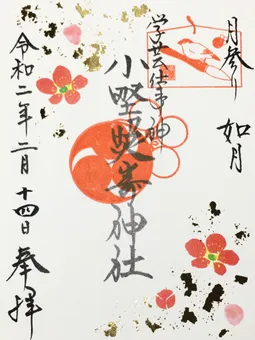 月参り 如月
学芸仕事ノ神
小野照崎神社
令和二年二月十四日 奉拝